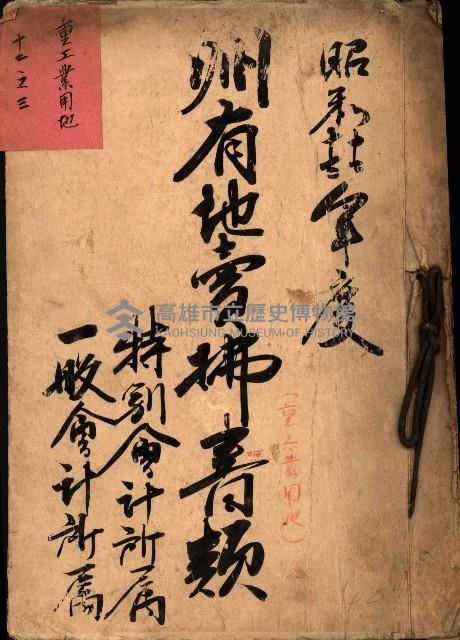 昭和拾年度
州有地賣拂書類
(重工業用地)
特別會計所屬
一般會計所屬
重工業用地
十二之三
高雄市立歷史博物館
KAOHSIUNG MUSEUM OF HISTORY